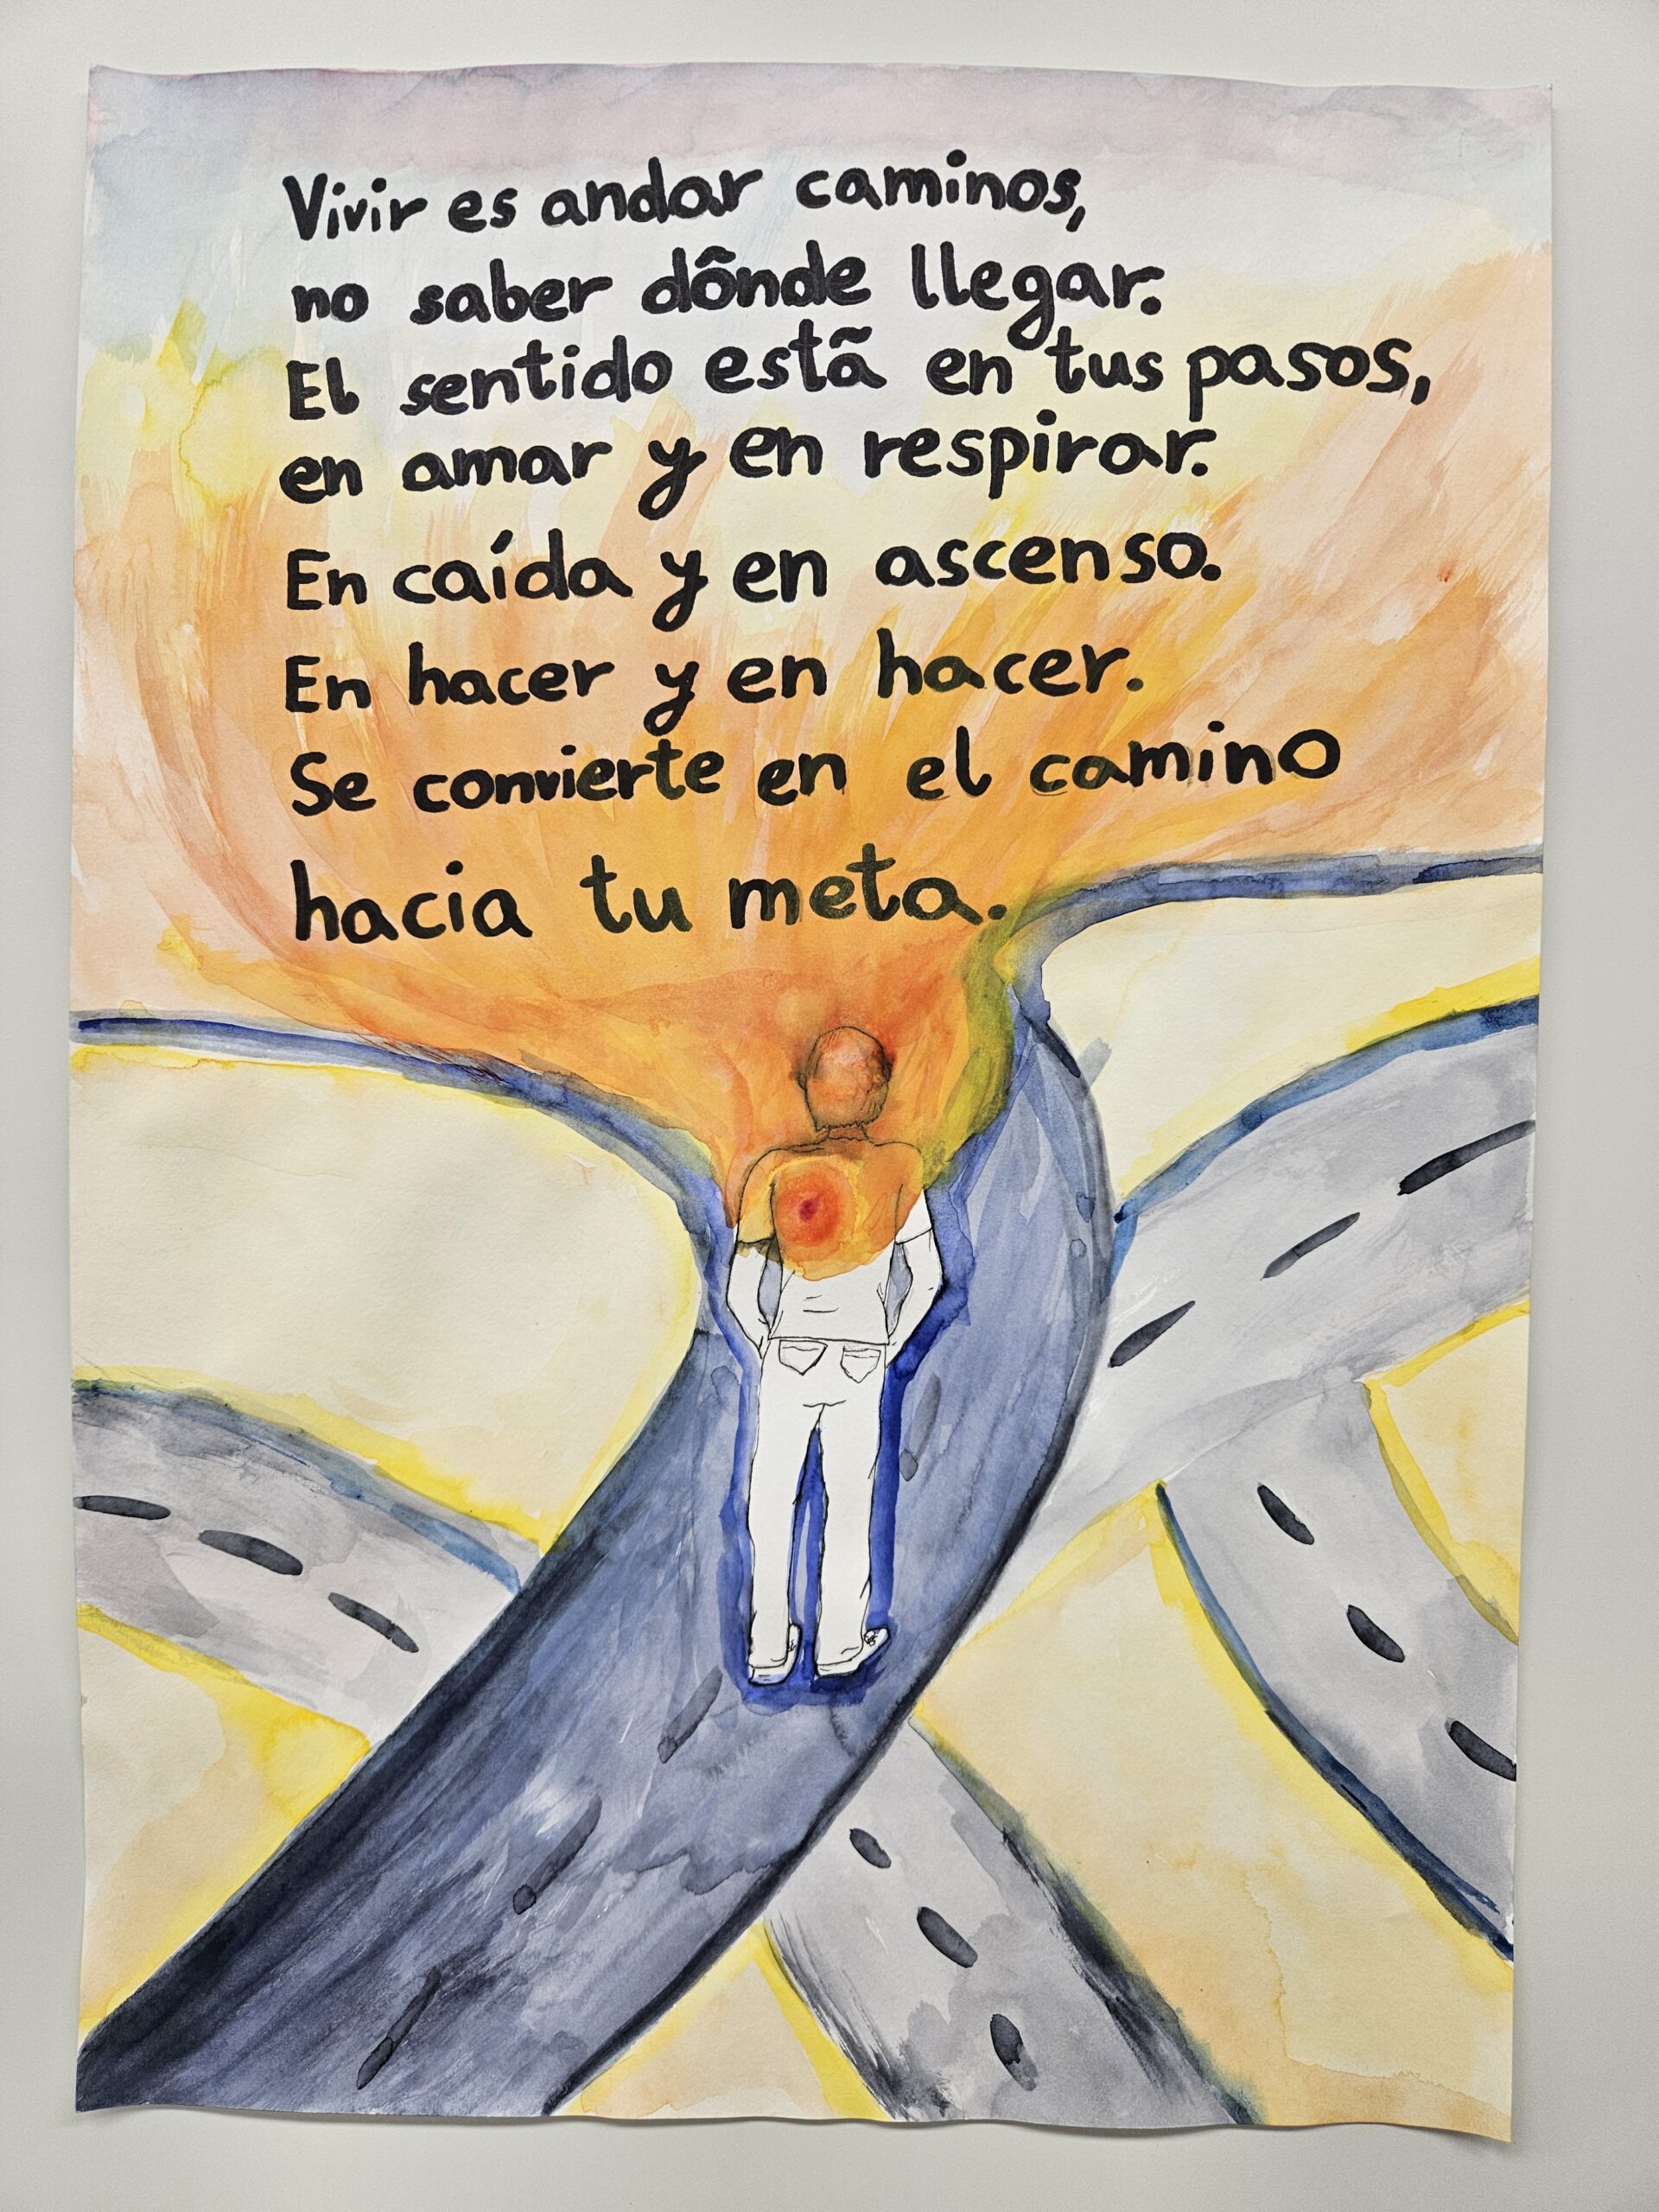 Vivir es andar caminos,
no saber dônde llegar.
El sentido estã en tus pasos,
en amar y en respirar.
En caída y en ascenso.
En hacer y en hacer.
Se convierte en el camino
hacia tu meta.